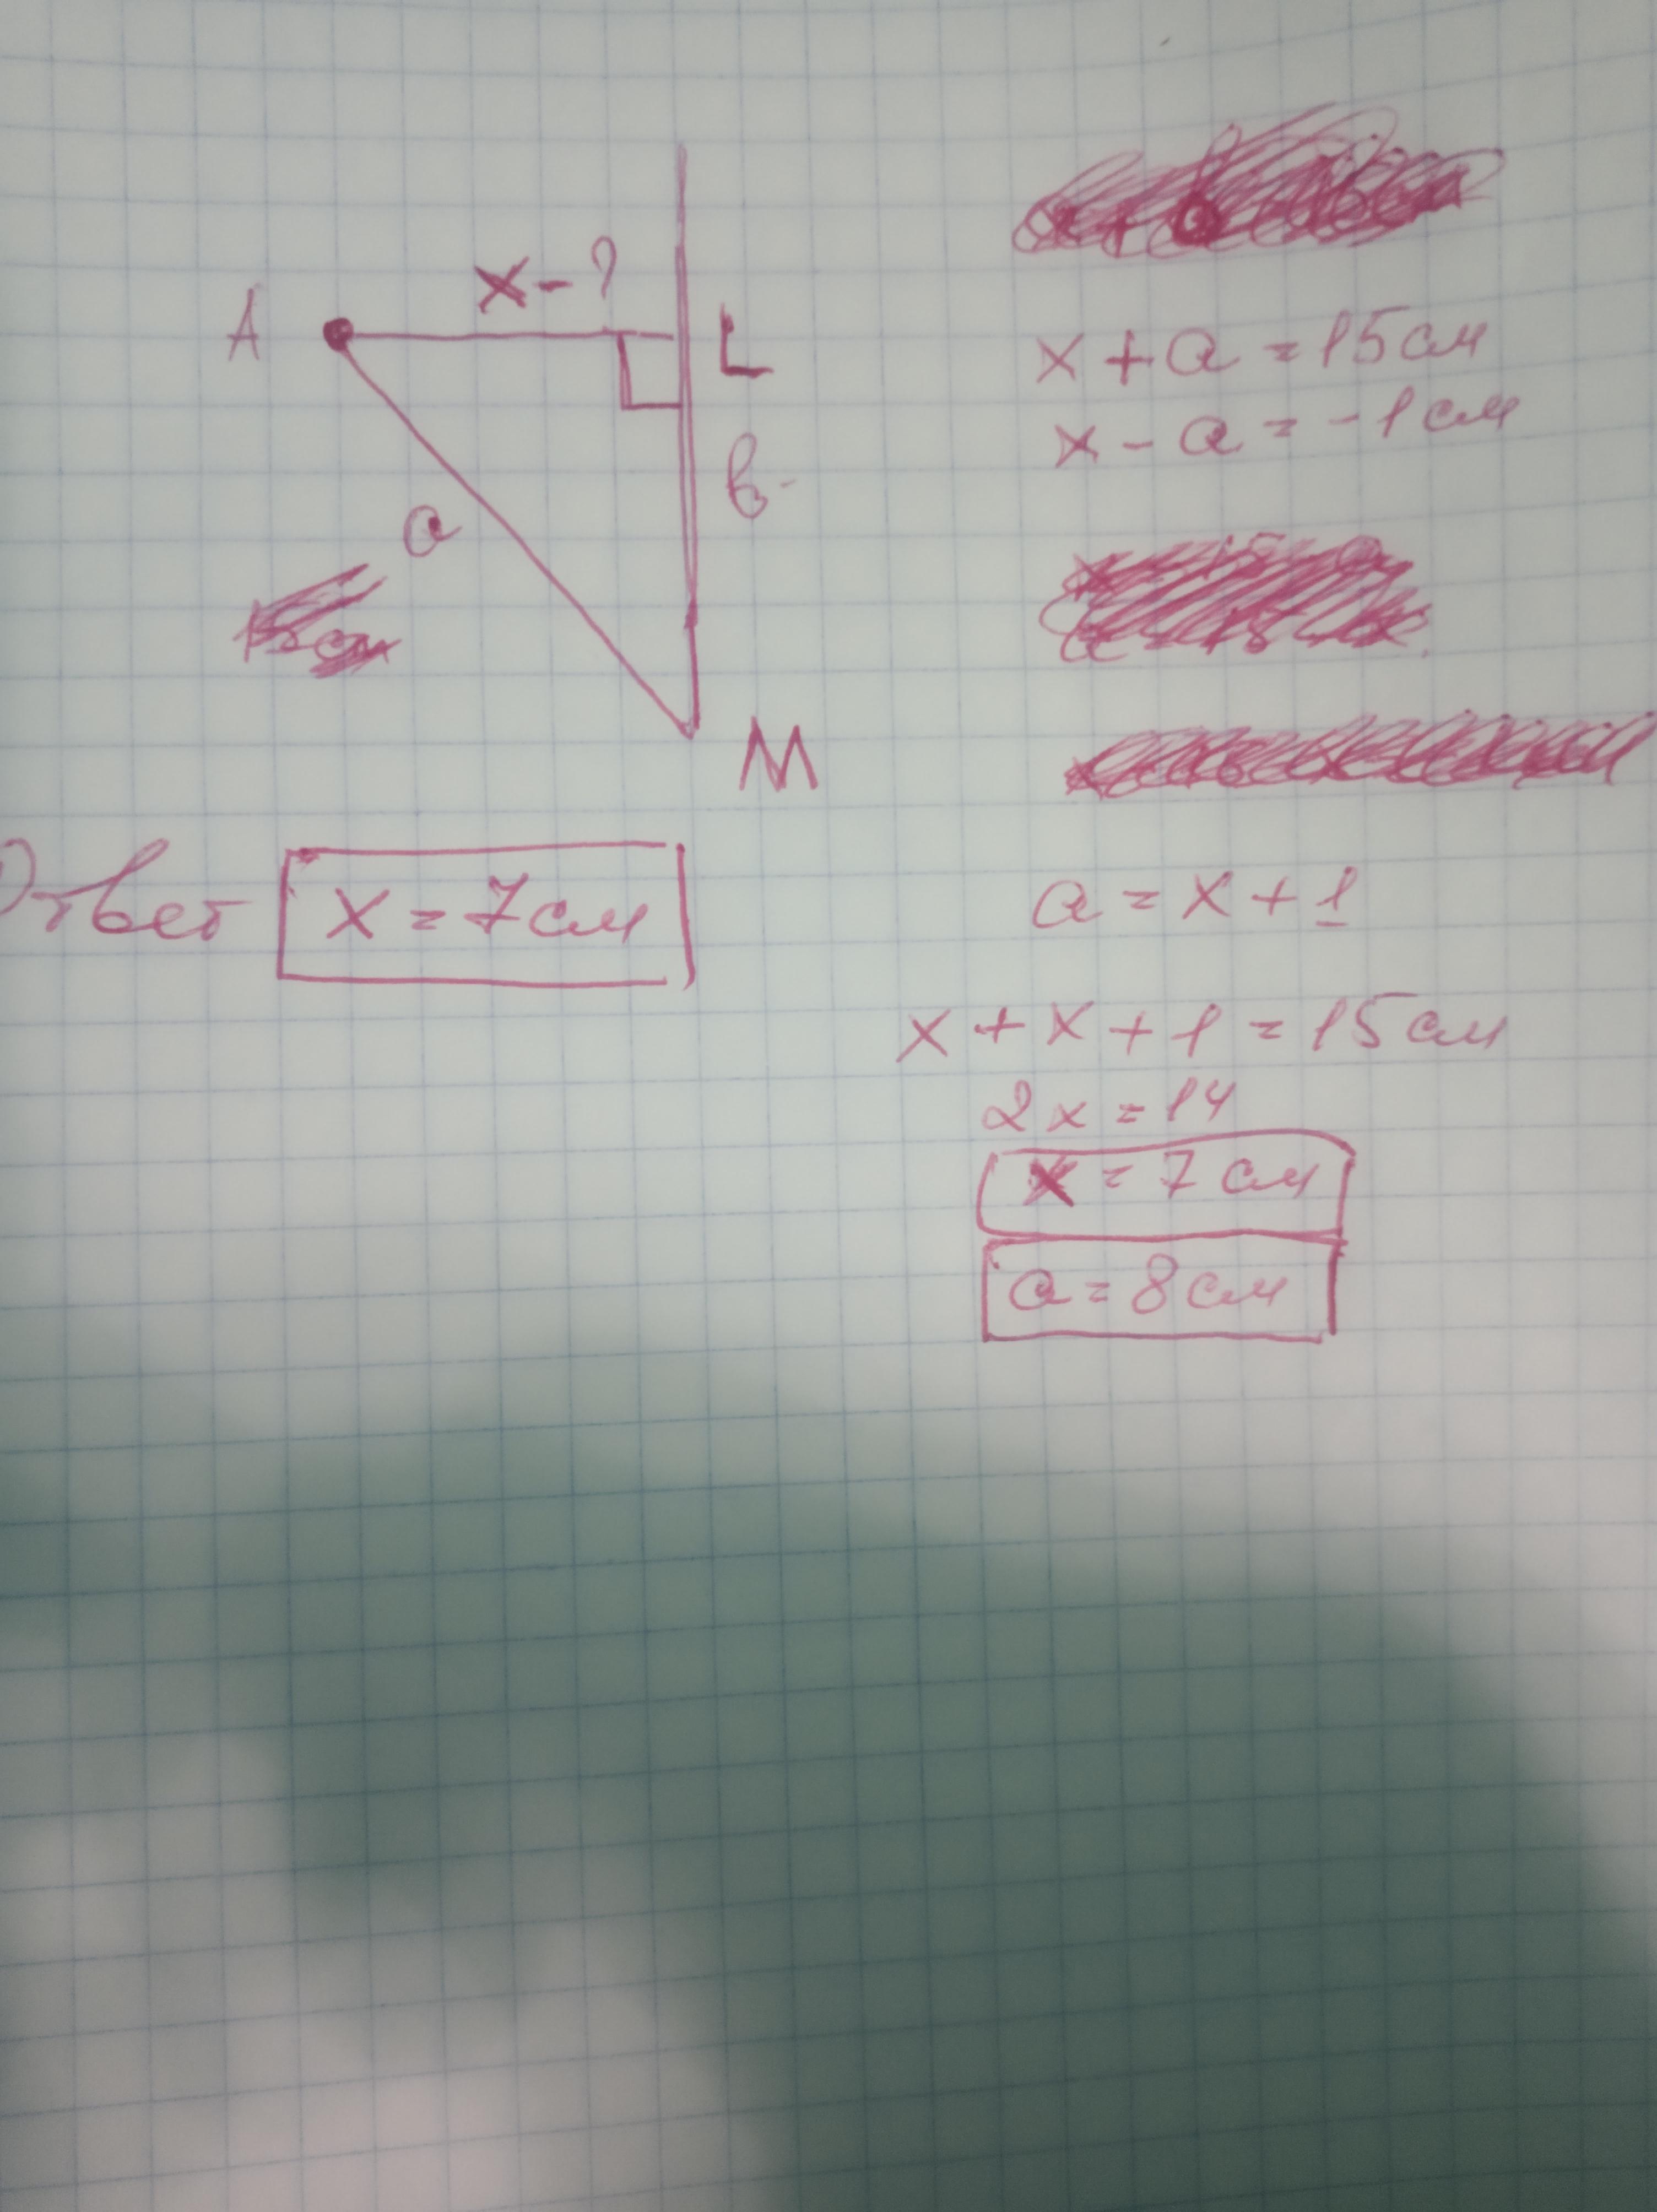 x - ?
A
L
в
a
M
Ответ x = 7 см
x + a = 15 см
x - a = -1 см
a = x + 1
x + x + 1 = 15 см
2x = 14
x = 7 см
a = 8 см